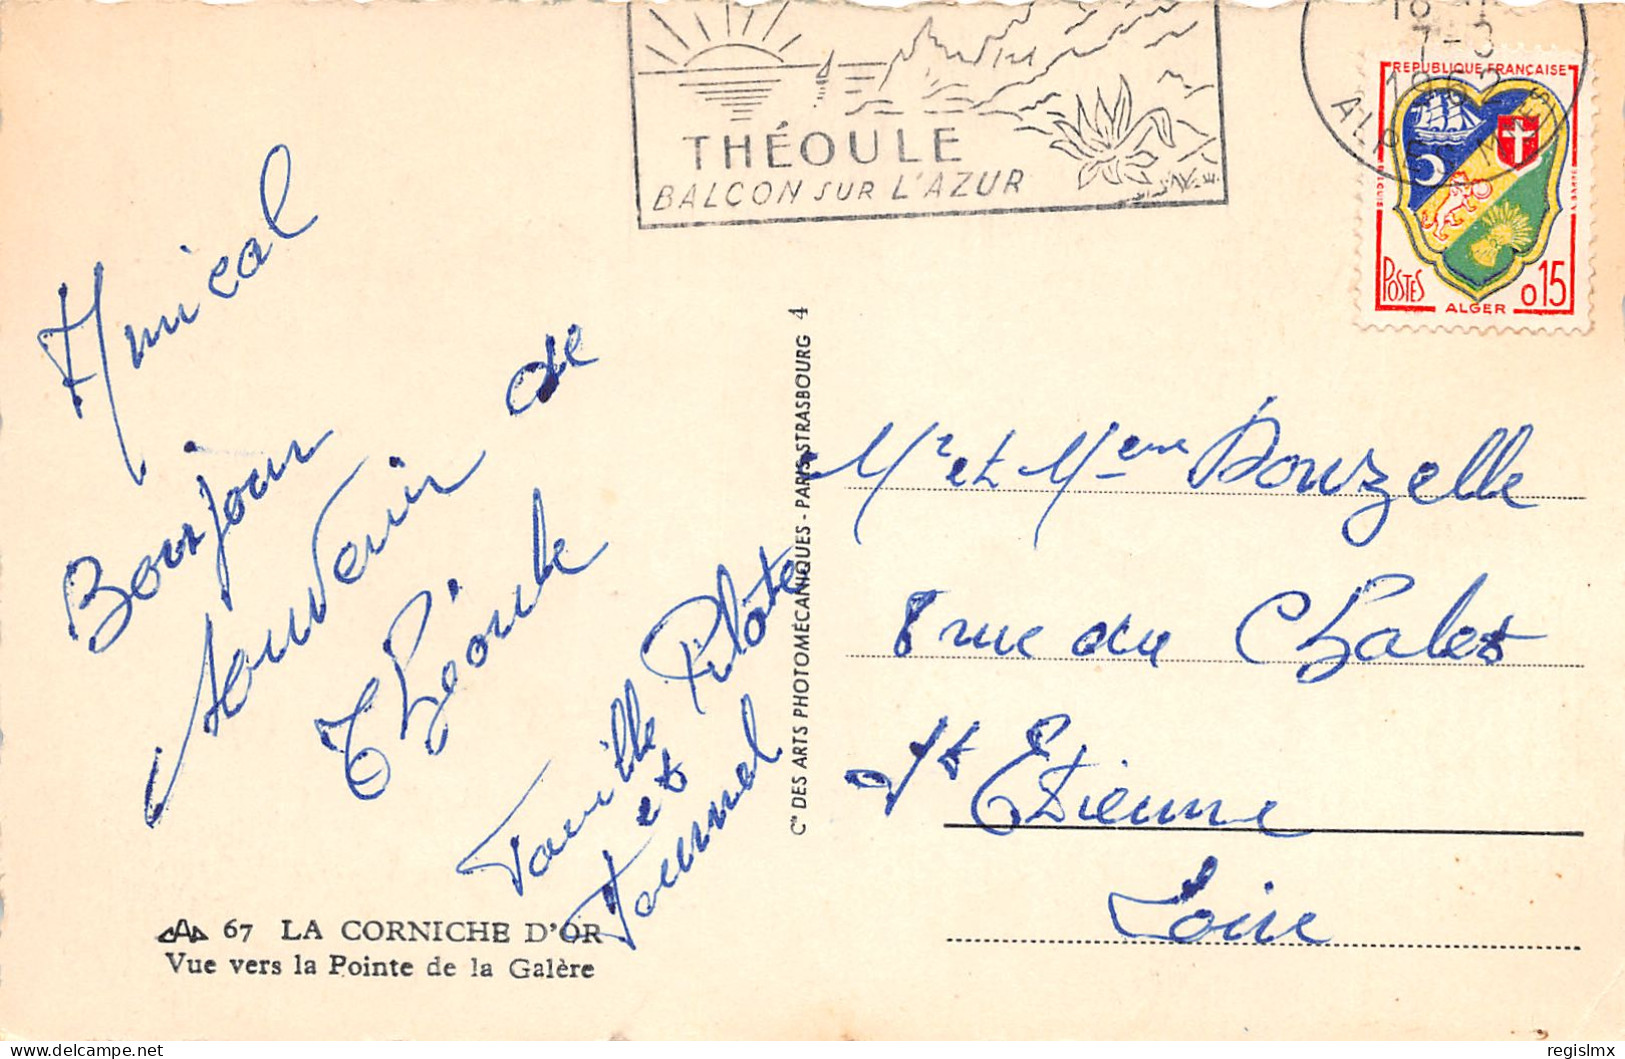 THÉOULE
BALCON SUR L'AZUR
18
7-3
1962
ALPES MMES
REPUBLIQUE FRANÇAISE
POSTES
ALGER
0,15
Amical
Bonjour
souvenir de
Théoule
Famille Pilote
et
Tournel
Cie DES ARTS PHOTOMÉCANIQUES - PARIS-STRASBOURG 4
Mr et Mme Douzelle
8 rue du Chalet
St Etienne
Loire
CAP 67 LA CORNICHE D'OR
Vue vers la Pointe de la Galère
regislmx
delcampe.net